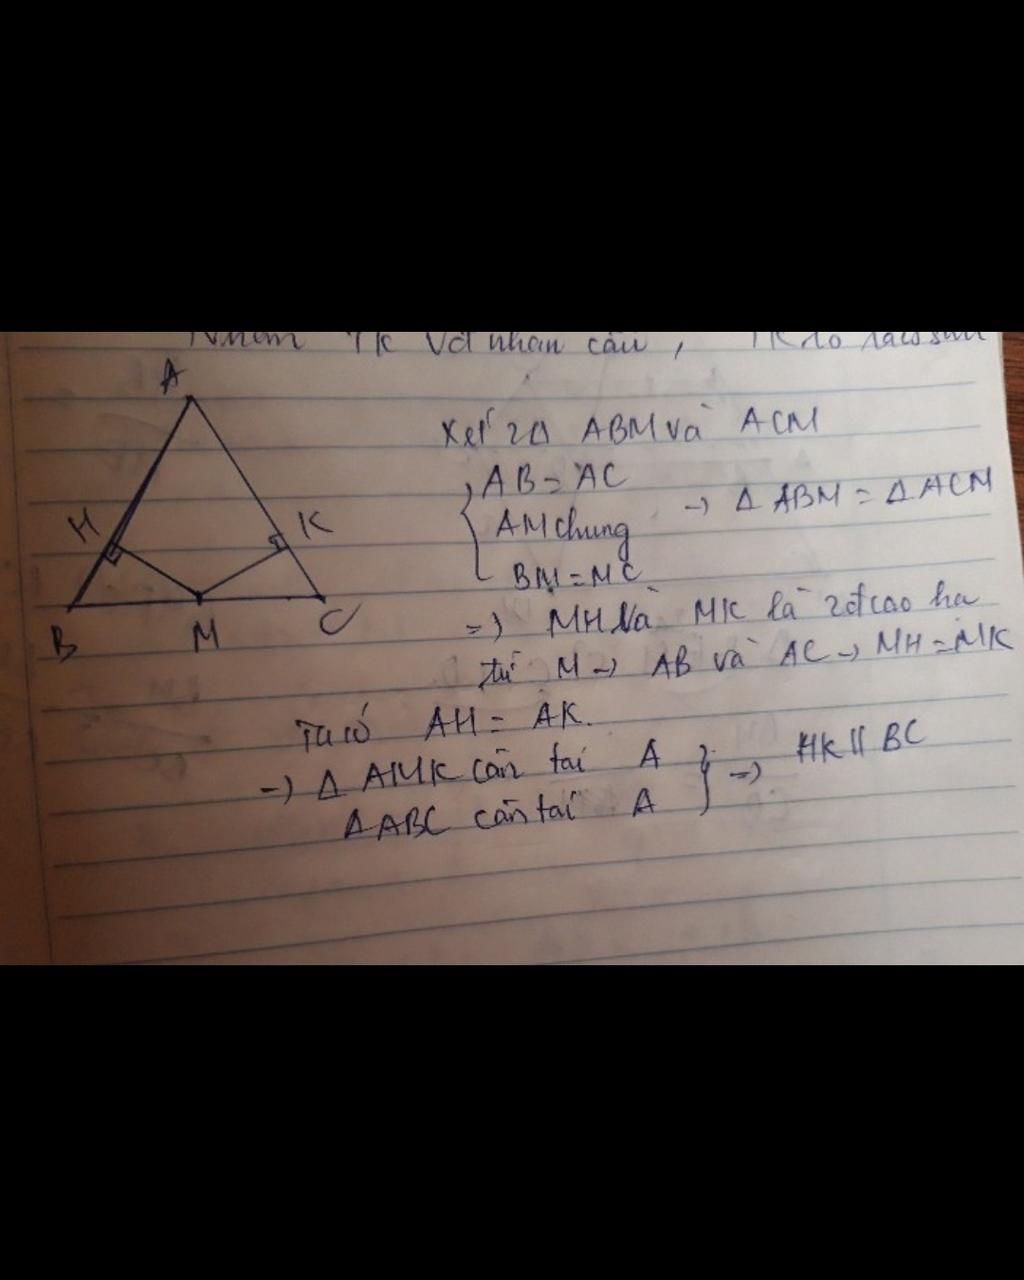 A
H
K
B
M
C
Xét 2Δ ABM và ACM
AB = AC
AM chung → Δ ABM = Δ ACM
BM = MC
=> MH và MK là 2 đ cao hạ
từ M → AB và AC → MH = MK
Ta có AH = AK.
→ Δ AHK cân tại A
Δ ABC cân tại A → HK // BC